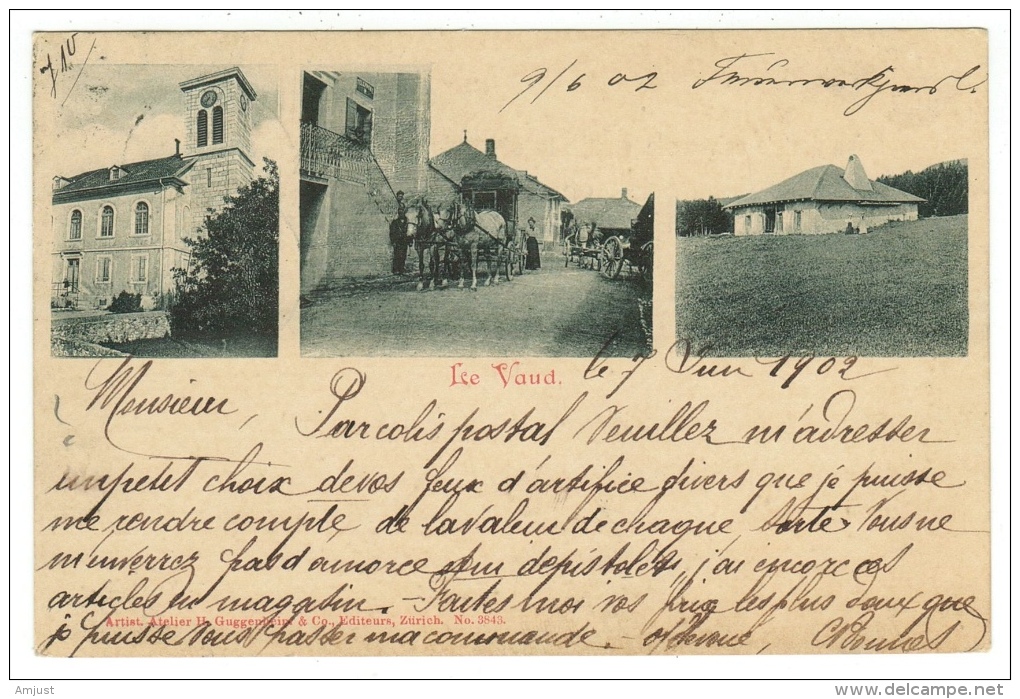 9/6 02
Le Vaud.
le 7 Juin 1902
Monsieur,
Par colis postal Veuillez m'adresser
un petit choix de vos feux d'artifice divers que je puisse
me rendre compte de la valeur de chaque sorte. Vous ne
m'enverrez pas d'amorce ni de pistolets, j'ai encore ces
articles en magasin. - Faites moi vos prix les plus doux que
Artist. Atelier H. Guggenheim & Co., Editeurs, Zürich. No. 3843.
je puisse vous passer ma commande.
Amjust
delcampe.net